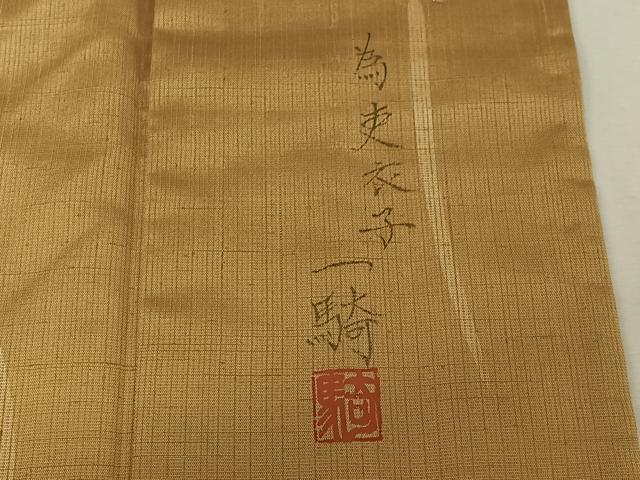 為吏衣子
一騎
騎